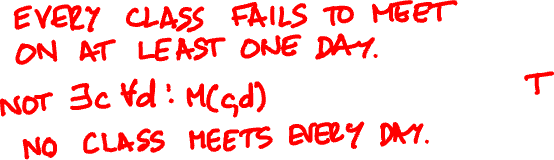 EVERY CLASS FAILS TO MEET
ON AT LEAST ONE DAY.
NOT ∃c ∀d : M(c,d) T
NO CLASS MEETS EVERY DAY.